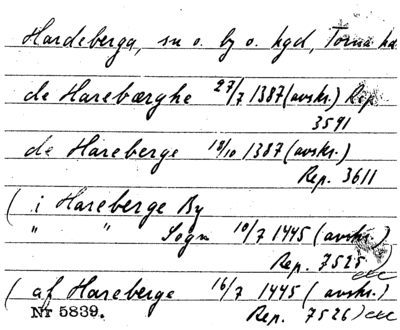 Hardeberga, sn o. by o. hgd, Torna hd.
de Harebærghe 27/7 1387 (avskr.) Rep.
3591
de Hareberge 18/10 1387 (avskr.)
Rep. 3611
( i Hareberge By
" " Sogn 10/7 1445 (avskr.)
Rep. 7525
( af Hareberge 16/7 1445 (avskr.)
Nr 5839. Rep. 7526)